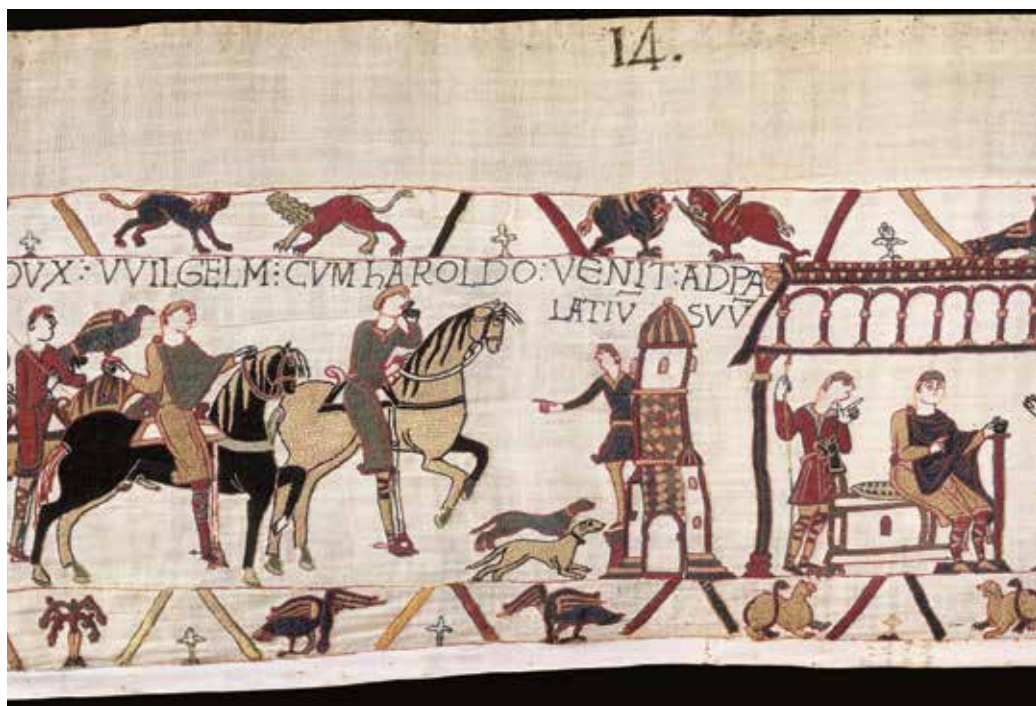 14.
DVX : VVILGELM : CVM hAROLDO : VENIT : AD PA
LATIV̄ SVV̄